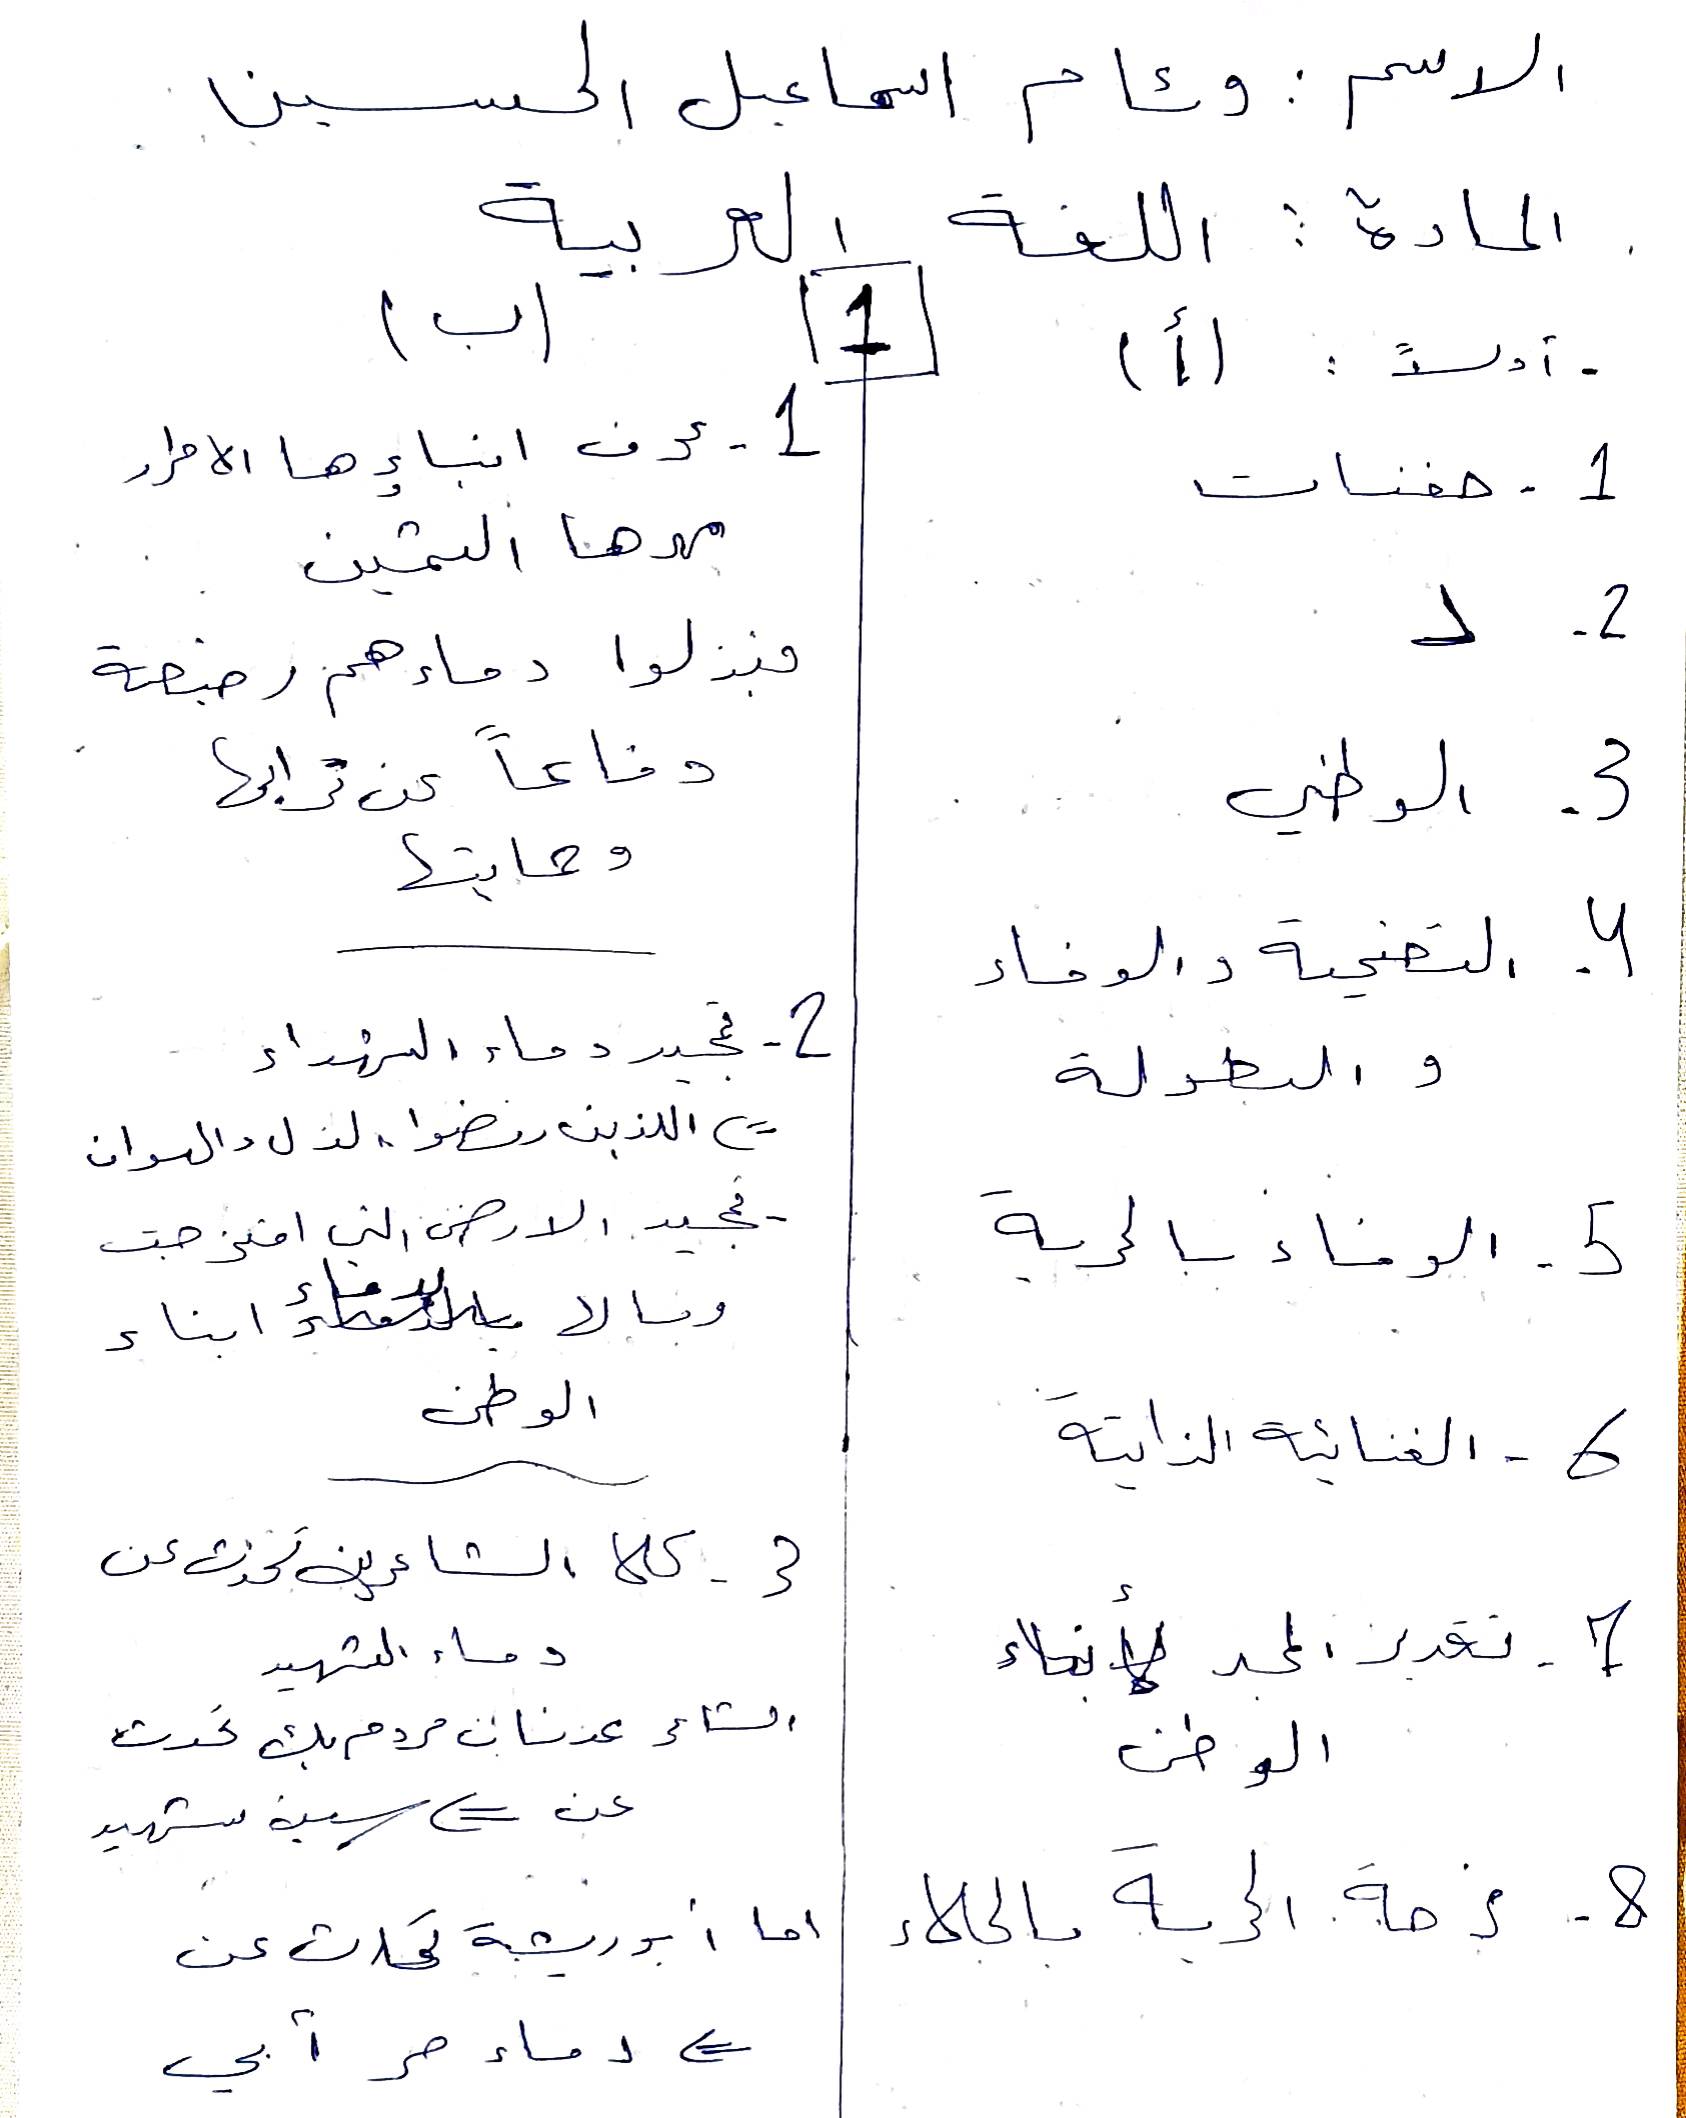 الاسم : وئام اسماعيل الحسين
المادة : اللغة العربية
1
- أولاً : (أ)
1 - حفنات
2 - د
3 - الوطني
4 - التضحية والوفاء
و البطولة
5 - الوفاء بالحرية
6 - الغنائية الذاتية
7 - تقدير المجد لأبناء
الوطن
8 - فرحة الحرية بالجلاء
(ب)
1 - عرف ابناءها الاحرار
مهرها الثمين
فبذلوا دماءهم رخيصة
دفاعاً عن ترابها
وحمايتها
2 - تمجيد دماء الشهداء
الذين رفضوا الذل والهوان
- تمجيد الارض التي امتزجت
دماء ابناء
الوطن
3 - كلا الشاعرين تحدث عن
دماء الشهيد
الشاعر عدنان مردم بك تحدث
عن <= شهيد
اما أبو ريشة تحدث عن
<= دماء حر أبي